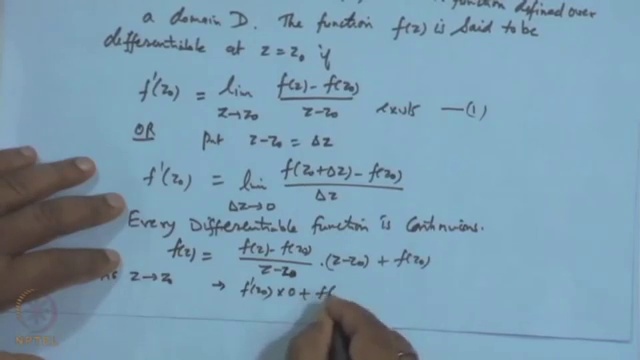 function defined over
a domain D. The function f(z) is said to be
differentiable at z = z₀ if
f'(z₀) = lim z→z₀ (f(z) - f(z₀))/(z - z₀) exists —(1)
OR put z - z₀ = Δz
f'(z₀) = lim Δz→0 (f(z₀+Δz) - f(z₀))/Δz
Every Differentiable function is Continuous.
f(z) = (f(z) - f(z₀))/(z - z₀) · (z - z₀) + f(z₀)
z→z₀ → f'(z₀) × 0 + f(
NPTEL